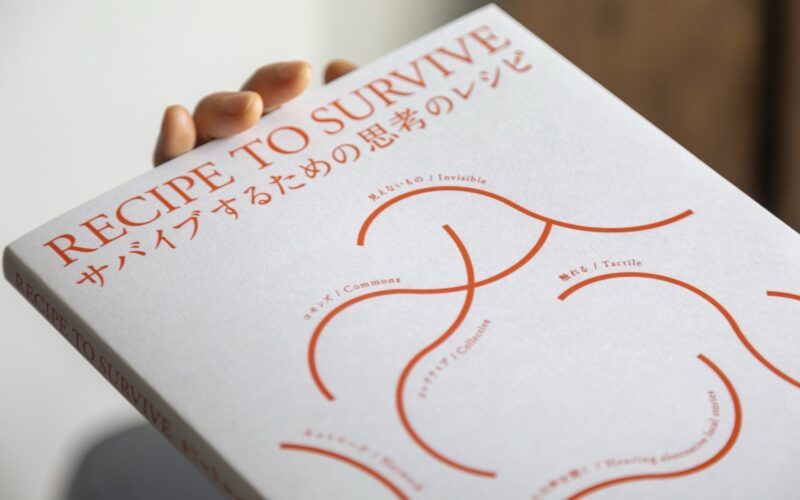 RECIPE TO SURVIVE
サバイブするための思考のレシピ
見えないもの / Invisible
コモンズ / Commons
触れる / Tactile
コレクティブ / Collective
ネットワーク / Network
の声を聞く / Hearing alternative local stories
RECIPE TO SURVIVE